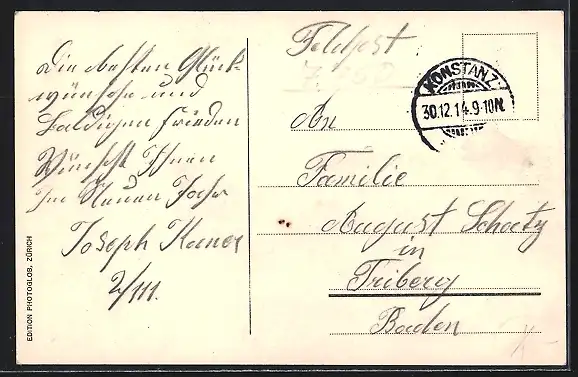 Die besten Glück-
wünsche und
baldigen Frieden
Wünscht Ihnen
im Neuen Jahr
Joseph
2/111.
Feldpost
KONSTANZ
30.12.14.9-10N.
An
Familie
August Schatz
in
Triberg
Baden
EDITION PHOTOGLOB. ZÜRICH